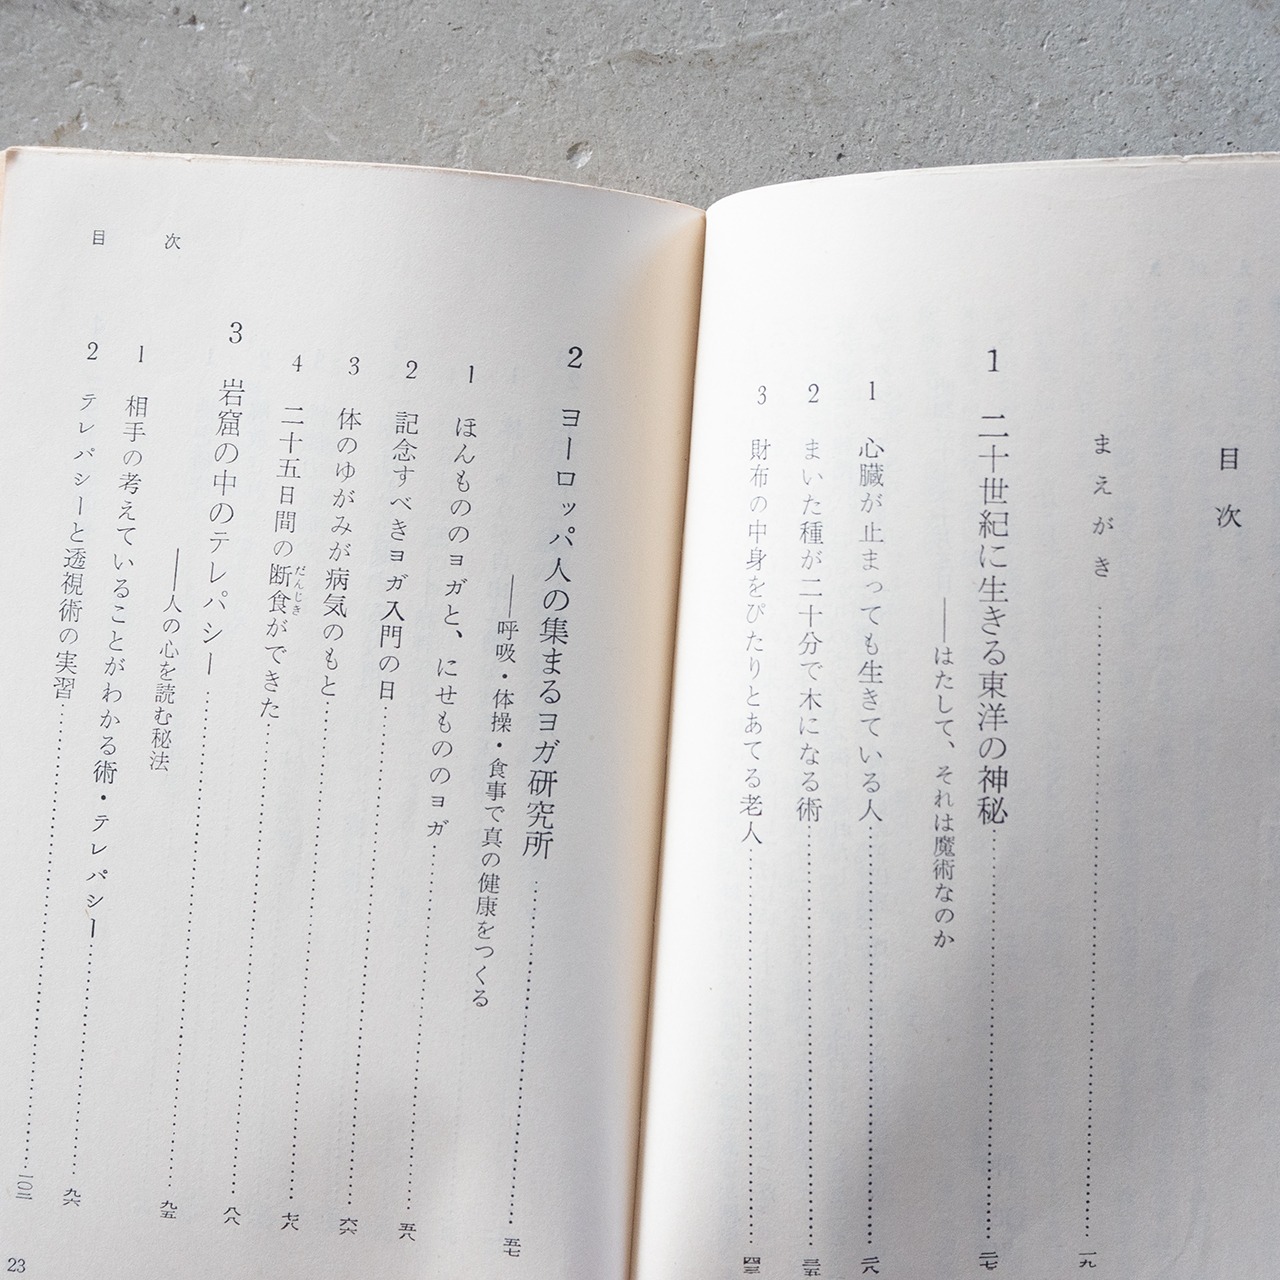 目次
まえがき……一九
1 二十世紀に生きる東洋の神秘……二七
――はたして、それは魔術なのか
1 心臓が止まっても生きている人……二八
2 まいた種が二十分で木になる術……三五
3 財布の中身をぴたりとあてる老人……四三
2 ヨーロッパ人の集まるヨガ研究所……五七
――呼吸・体操・食事で真の健康をつくる
1 ほんもののヨガと、にせもののヨガ……五八
2 記念すべきヨガ入門の日……六六
3 体のゆがみが病気のもと……七八
4 二十五日間の断食ができた……八八
だんじき
3 岩窟の中のテレパシー……九五
――人の心を読む秘法
1 相手の考えていることがわかる術・テレパシー……九六
2 テレパシーと透視術の実習……一〇二
目次
23